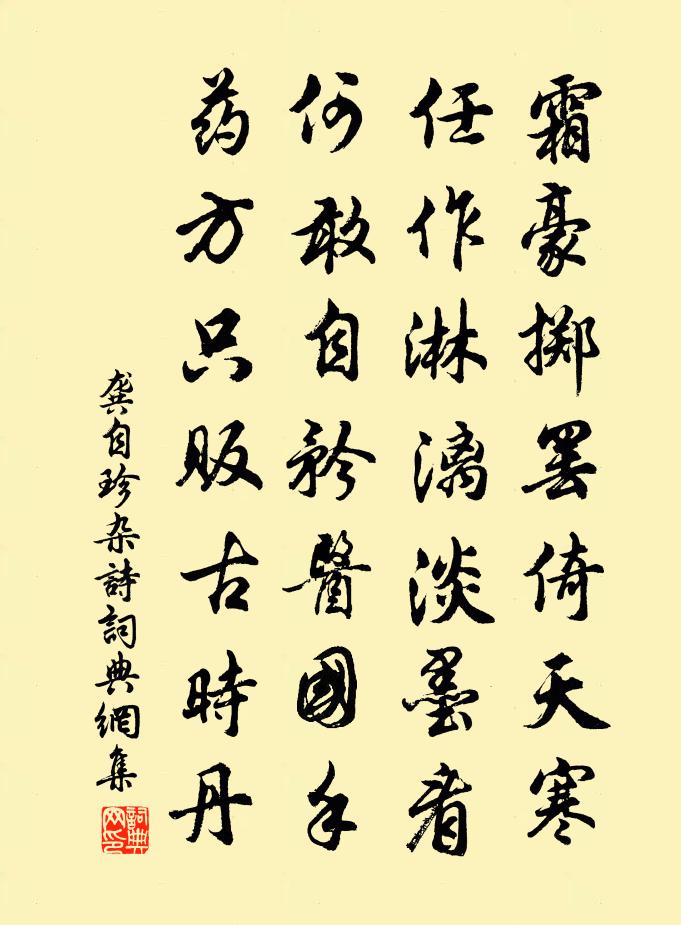 霜豪掷罢倚天寒
任作淋漓淡墨看
何敢自矜醫國手
药方只販古時丹
龚自珍杂詩詞典網集
詞典網印